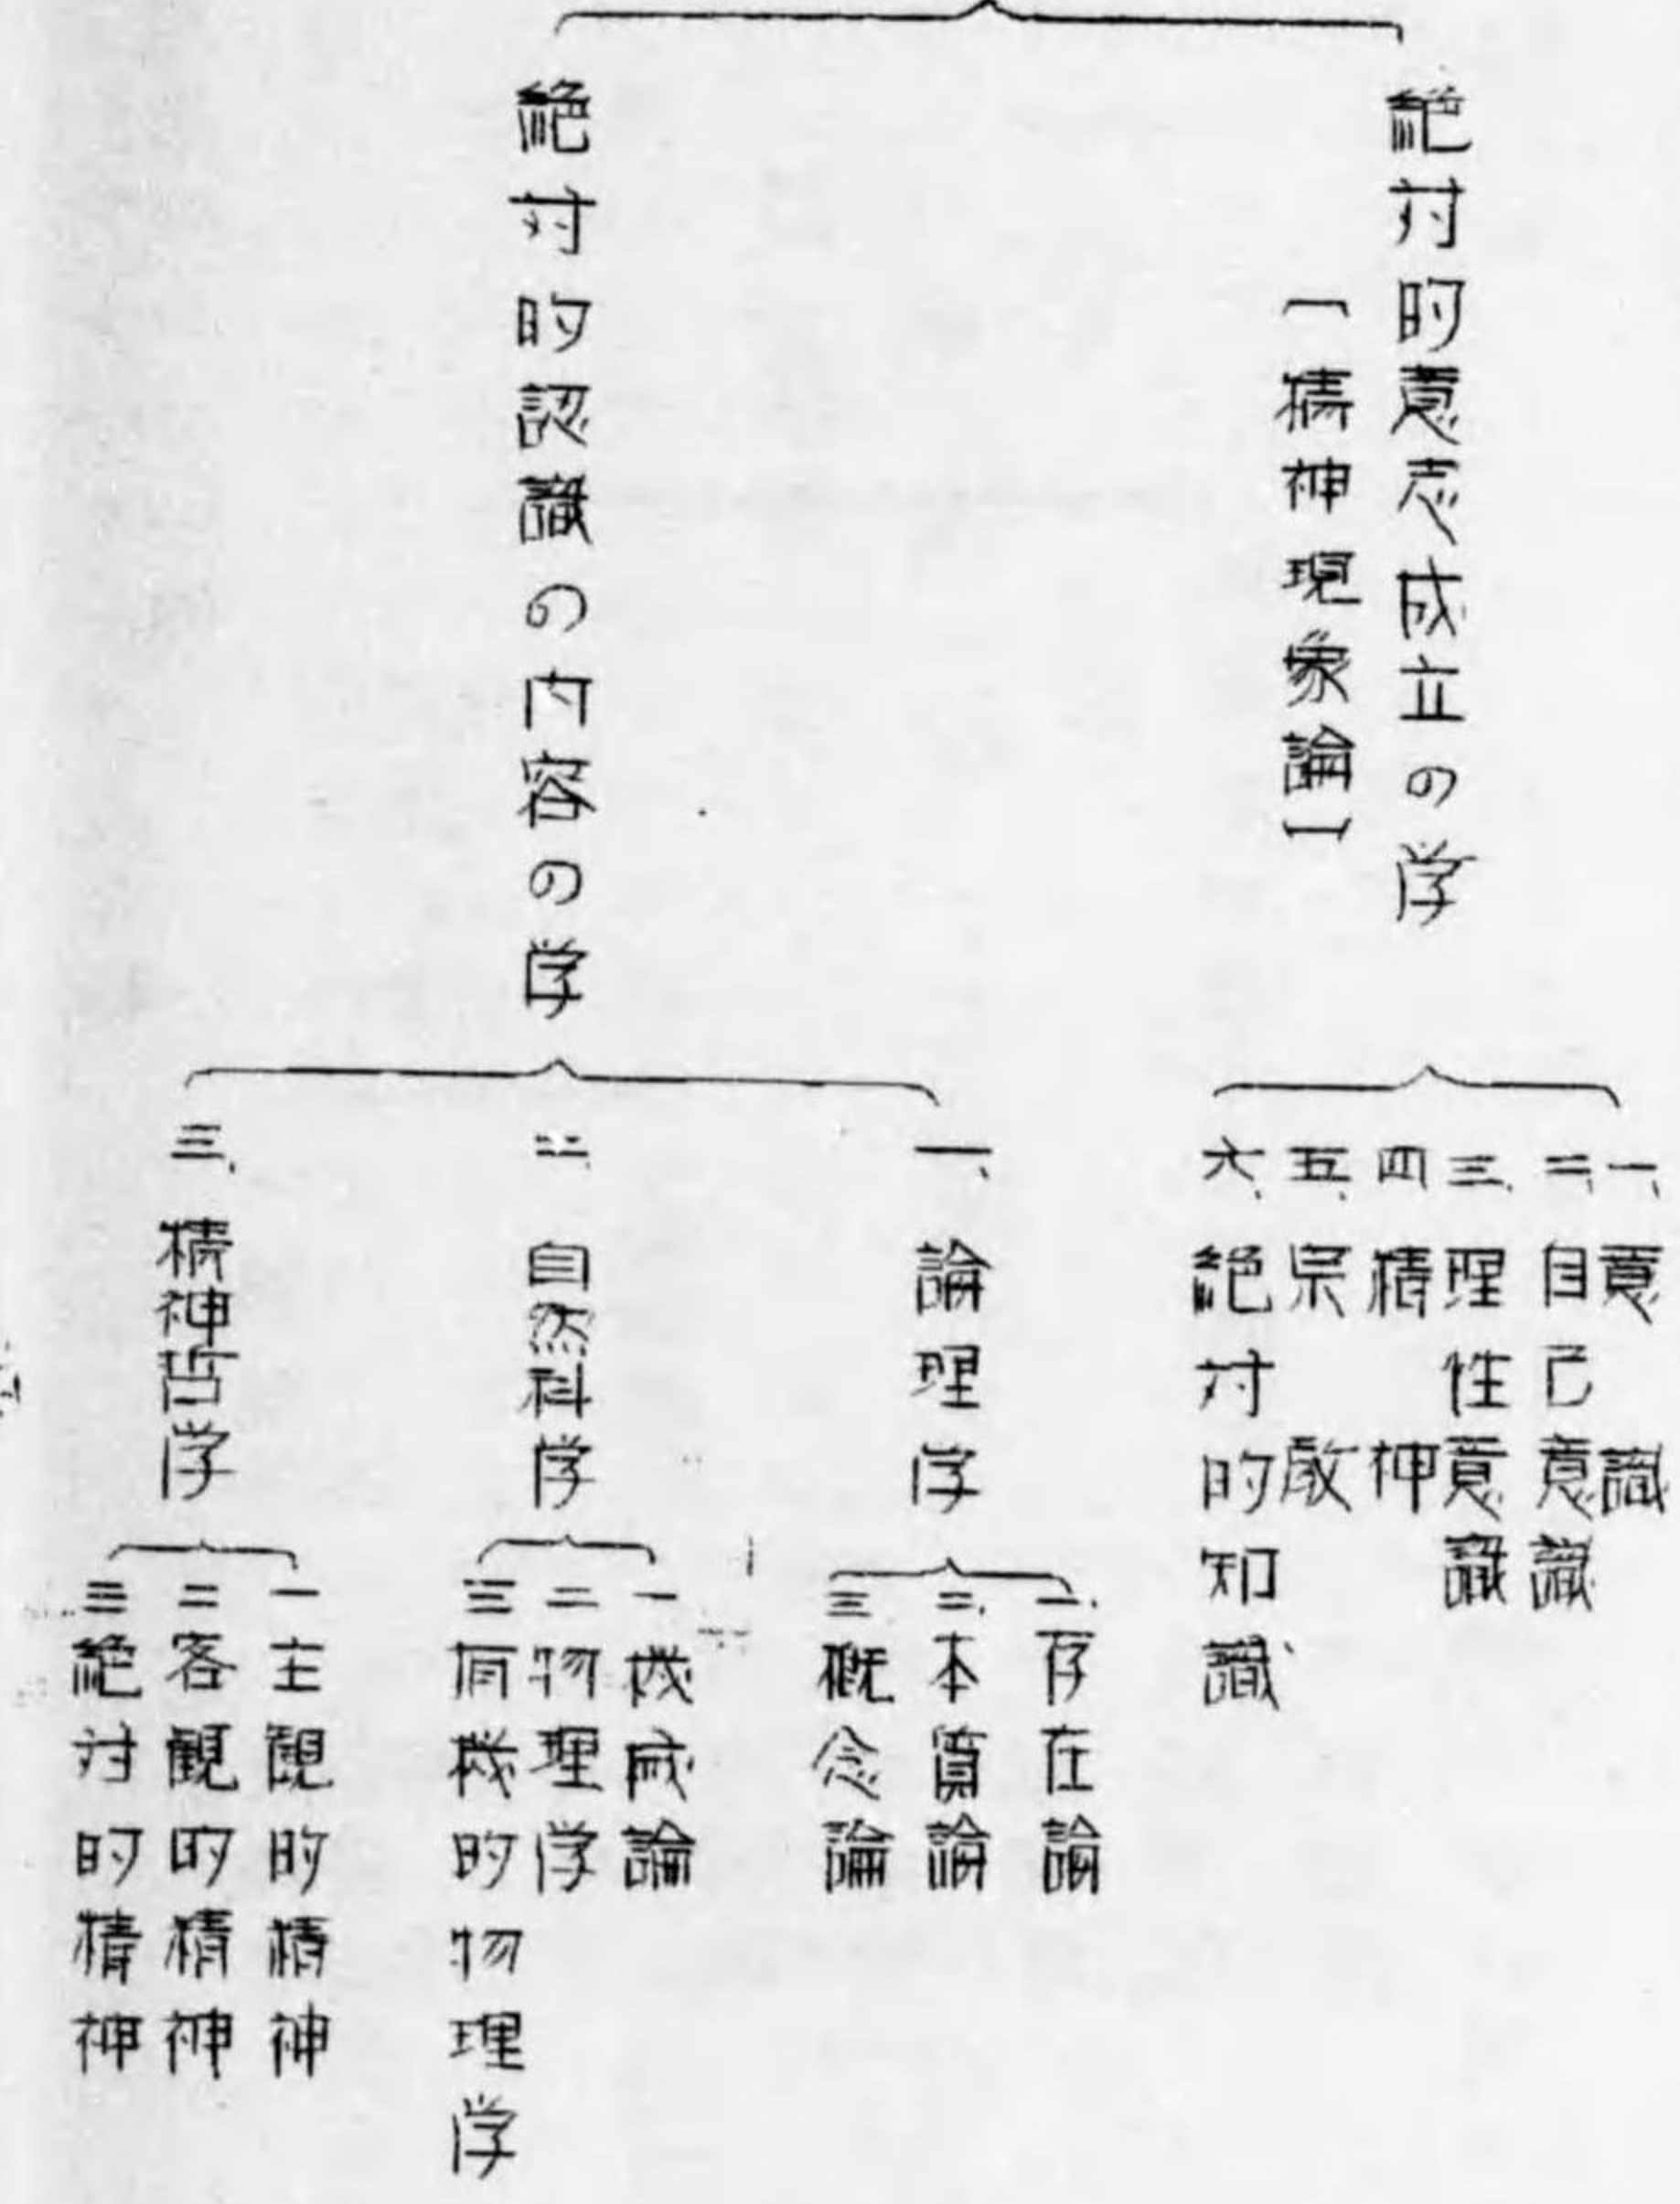 絶対的意志成立の学
[精神現象論]
一、意識
二、自己意識
三、理性意識
四 精神
五、宗教
六、絶対的知識
絶対的認識の内容の学
一、論理学
一、存在論
二、本質論
三 概念論
二 自然科学
一 機械論
二 物理学
三 有機的物理学
三、精神哲学
一 主観的精神
二 客観的精神
三 絶対的精神